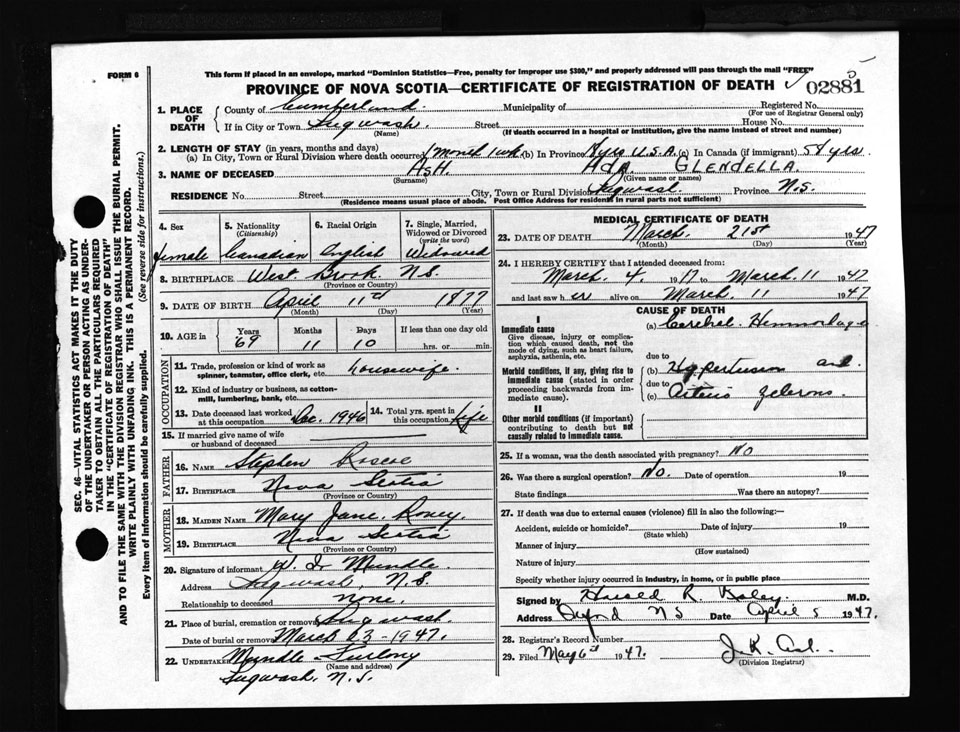 FORM 6
This form if placed in an envelope, marked "Dominion Statistics—Free, penalty for improper use $300," and properly addressed will pass through the mail "FREE"
PROVINCE OF NOVA SCOTIA—CERTIFICATE OF REGISTRATION OF DEATH
02881
5
1. PLACE OF DEATH
County of Cumberland. Municipality of Registered No.
(For use of Registrar General only)
If in City or Town Pugwash. Street House No.
(Name) (If death occurred in a hospital or institution, give the name instead of street and number)
2. LENGTH OF STAY (in years, months and days)
(a) In City, Town or Rural Division where death occurred 1 month 1 wk (b) In Province 8 yrs U.S.A. (c) In Canada (if immigrant) 58 yrs.
3. NAME OF DECEASED ASH. ADA GLENDELLA
(Surname) (Given name or names)
RESIDENCE No. Street City, Town or Rural Division Pugwash Province N.S.
(Residence means usual place of abode. Post Office Address for residents in rural parts not sufficient)
4. Sex
female
5. Nationality
(Citizenship)
Canadian
6. Racial Origin
English
7. Single, Married, Widowed or Divorced
(write the word)
Widowed
8. BIRTHPLACE West Brook N.S.
(Province or Country)
9. DATE OF BIRTH April 11th 1877
(Month) (Day) (Year)
10. AGE in Years Months Days If less than one day old
69 11 10 hrs. or min.
OCCUPATION
11. Trade, profession or kind of work as spinner, teamster, office clerk, etc. housewife.
12. Kind of industry or business, as cotton-mill, lumbering, bank, etc.
13. Date deceased last worked at this occupation Dec. 1946
14. Total yrs. spent in this occupation life
15. If married give name of wife or husband of deceased
FATHER
16. NAME Stephen Roscoe
17. BIRTHPLACE Nova Scotia
(Province or Country)
MOTHER
18. MAIDEN NAME Mary Jane
19. BIRTHPLACE Nova Scotia
(Province or Country)
20. Signature of informant Mundle
Address Pugwash, N.S.
Relationship to deceased none.
21. Place of burial, cremation or removal Pugwash.
Date of burial or removal March 23-1947.
22. Undertaker Mundle Furlong
(Name and address)
Pugwash, N.S.
MEDICAL CERTIFICATE OF DEATH
23. DATE OF DEATH March. 21st 1947
(Month) (Day) (Year)
24. I HEREBY CERTIFY that I attended deceased from:
March 4. 1947 to March 11 1947
and last saw her alive on March 11 1947
CAUSE OF DEATH
I
Immediate cause
Give disease, injury or complication which caused death, not the mode of dying, such as heart failure, asphyxia, asthenia, etc.
(a) Cerebral Hemmorhage
due to
Morbid conditions, if any, giving rise to immediate cause (stated in order proceeding backwards from immediate cause).
(b) Hypertension and
due to
(c) Arterio
II
Other morbid conditions (if important) contributing to death but not causally related to immediate cause.
25. If a woman, was the death associated with pregnancy? NO
26. Was there a surgical operation? NO. Date of operation 19
State findings Was there an autopsy?
27. If death was due to external causes (violence) fill in also the following:—
Accident, suicide or homicide? Date of injury 19
(State which)
Manner of injury
(How sustained)
Nature of injury
Specify whether injury occurred in industry, in home, or in public place
Signed by Harold R. M.D.
Address Oxford N S Date April 5 1947.
28. Registrar's Record Number
29. Filed May 6th 1947. J. K.
(Division Registrar)
SEC. 46—VITAL STATISTICS ACT MAKES IT THE DUTY
OF THE UNDERTAKER OR PERSON ACTING AS UNDER-
TAKER TO OBTAIN ALL THE PARTICULARS REQUIRED
IN THE "CERTIFICATE OF REGISTRATION OF DEATH"
AND TO FILE THE SAME WITH THE DIVISION REGISTRAR WHO SHALL ISSUE THE BURIAL PERMIT.
WRITE PLAINLY WITH UNFADING INK. THIS IS A PERMANENT RECORD.
Every item of information should be carefully supplied. (See reverse side for instructions.)